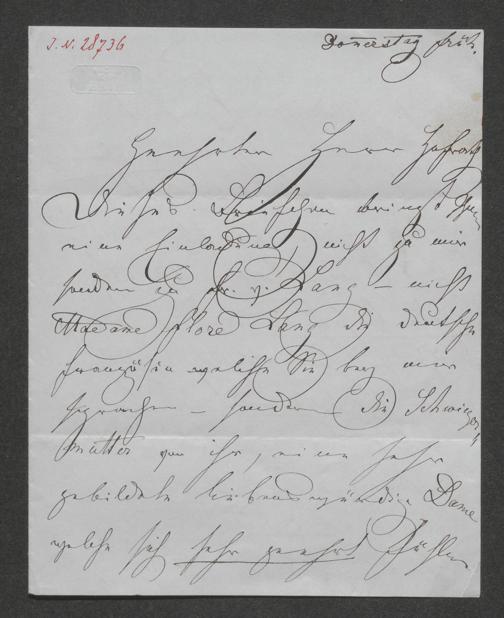 I. N. 28736
Donerstag früh.
Geehrter Herr Hofrath
Dieses Briefchen bringt Ihnen
eine Einladung, nicht zu mir
sondern zu Fr. v. Lang – nicht
Madame Flore Lang die deutsche
französin welche Sie bey mir
sprachen – sondern die Schwieger
mutter von ihr, eine sehr
gebildete liebenswürdige Dame
welche sich sehr geehrt fühlen